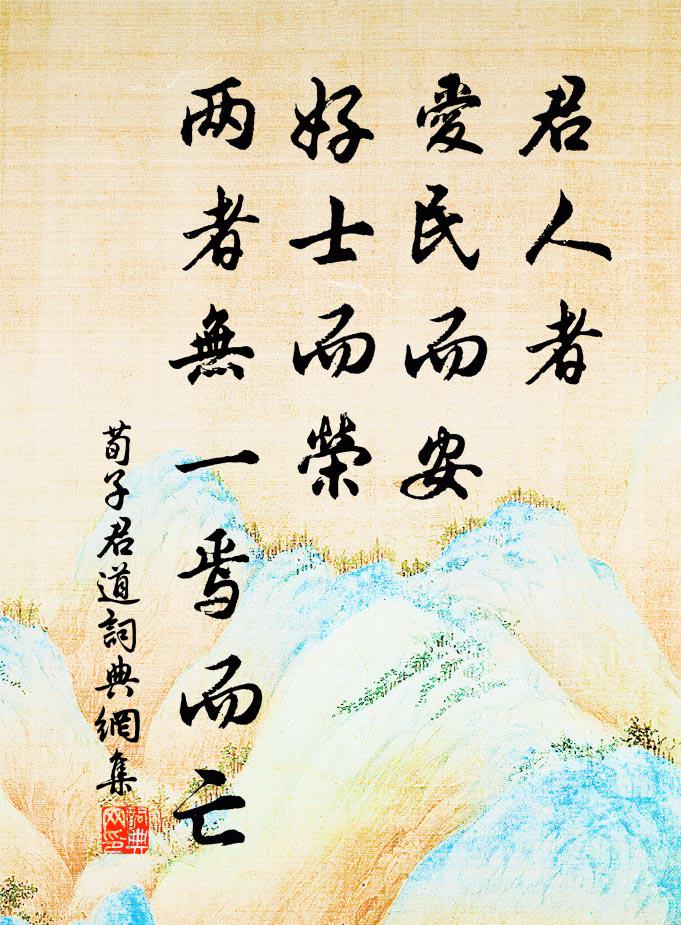 君人者
愛民而安
好士而榮
两者無一焉而亡
荀子君道詞典網集
詞典网印